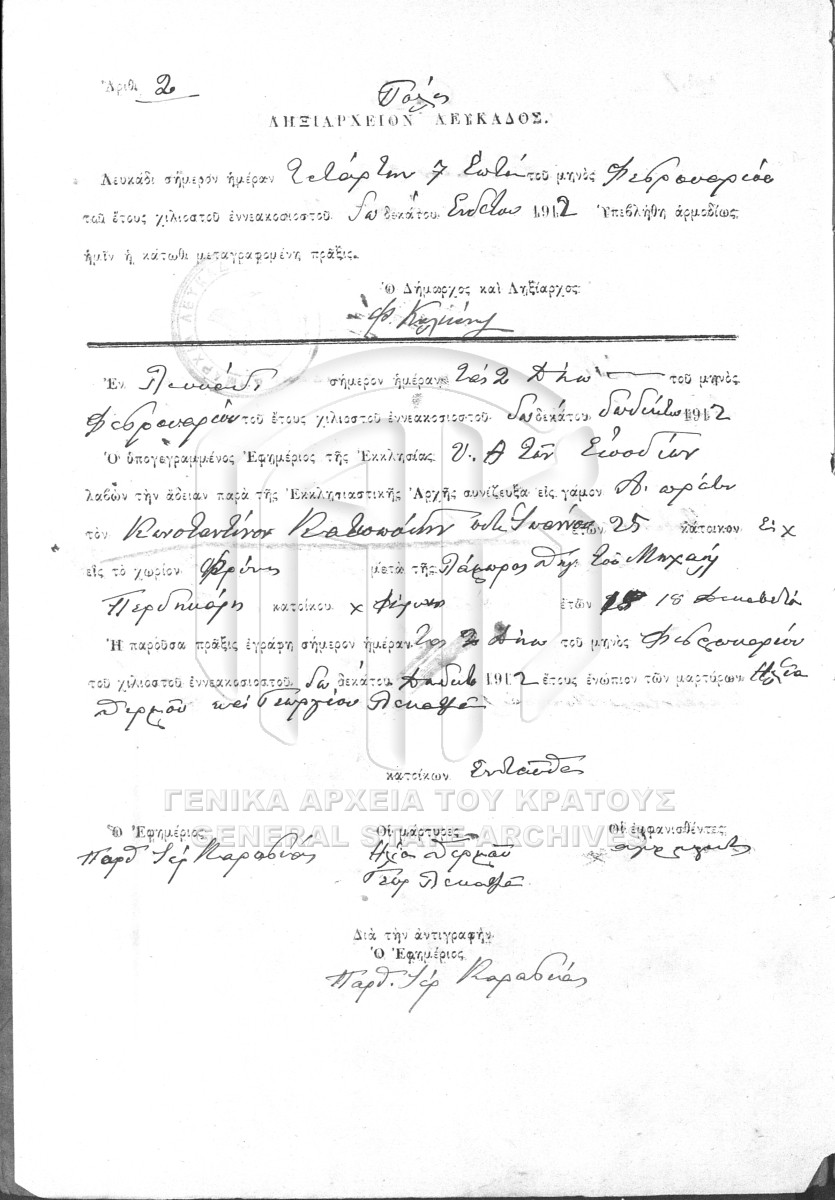 Ἀριθ. 2
Πόλις
ΛΗΞΙΑΡΧΕΙΟΝ ΛΕΥΚΑΔΟΣ.
Λευκάδι σήμερον ἡμέραν Τετάρτην 7 Ἑπτά τοῦ μηνὸς Φεβρουαρίου
τοῦ ἔτους χιλιοστοῦ ἐννεακοσιοστοῦ δωδεκάτου 1912 Ὑπεβλήθη ἁρμοδίως
ἡμῖν ἡ κάτωθι μεταγραφομένη πρᾶξις.
Ὁ Δήμαρχος καὶ Ληξίαρχος
Ἐν Λευκάδι σήμερον ἡμέραν τὰς 2 Δύω τοῦ μηνὸς
Φεβρουαρίου τοῦ ἔτους χιλιοστοῦ ἐννεακοσιοστοῦ δωδεκάτου 1912
Ὁ ὑπογεγραμμένος Ἐφημέριος τῆς Ἐκκλησίας τῶν Εἰσοδίων
λαβὼν τὴν ἄδειαν παρὰ τῆς Ἐκκλησιαστικῆς Ἀρχῆς συνέζευξα εἰς γάμον Α. πρῶτον
τὸν Κωνσταντῖνον Κατωπόδην ποτὲ Ἰωάννου ἐτῶν 25 κάτοικον εἰς χ
εἰς τὸ χωρίον Φρύνι μετὰ τῆς Λάμπρος θυγ. τοῦ Μιχαήλ
Περδικάρη κατοίκου χ Φρύνι ἐτῶν 18
Ἡ παροῦσα πρᾶξις ἐγράφη σήμερον ἡμέραν τὰς 2 Δύω τοῦ μηνὸς Φεβρουαρίου
τοῦ χιλιοστοῦ ἐννεακοσιοστοῦ δωδεκάτου 1912 ἔτους ἐνώπιον τῶν μαρτύρων Ἠλία
Θερμοῦ καὶ Γεωργίου
κατοίκων ἐνταῦθα
ΓΕΝΙΚΑ ΑΡΧΕΙΑ ΤΟΥ ΚΡΑΤΟΥΣ
GENERAL STATE ARCHIVES
Ὁ Ἐφημέριος Οἱ μάρτυρες Οἱ ἐμφανισθέντες
Παρθ. Ἱερ Καραβίας Ἠλίας Θερμοῦ ἀγράμματοι
Γεώρ
Διὰ τὴν ἀντιγραφήν
Ὁ Ἐφημέριος
Παρθ. Ἱερ Καραβίας